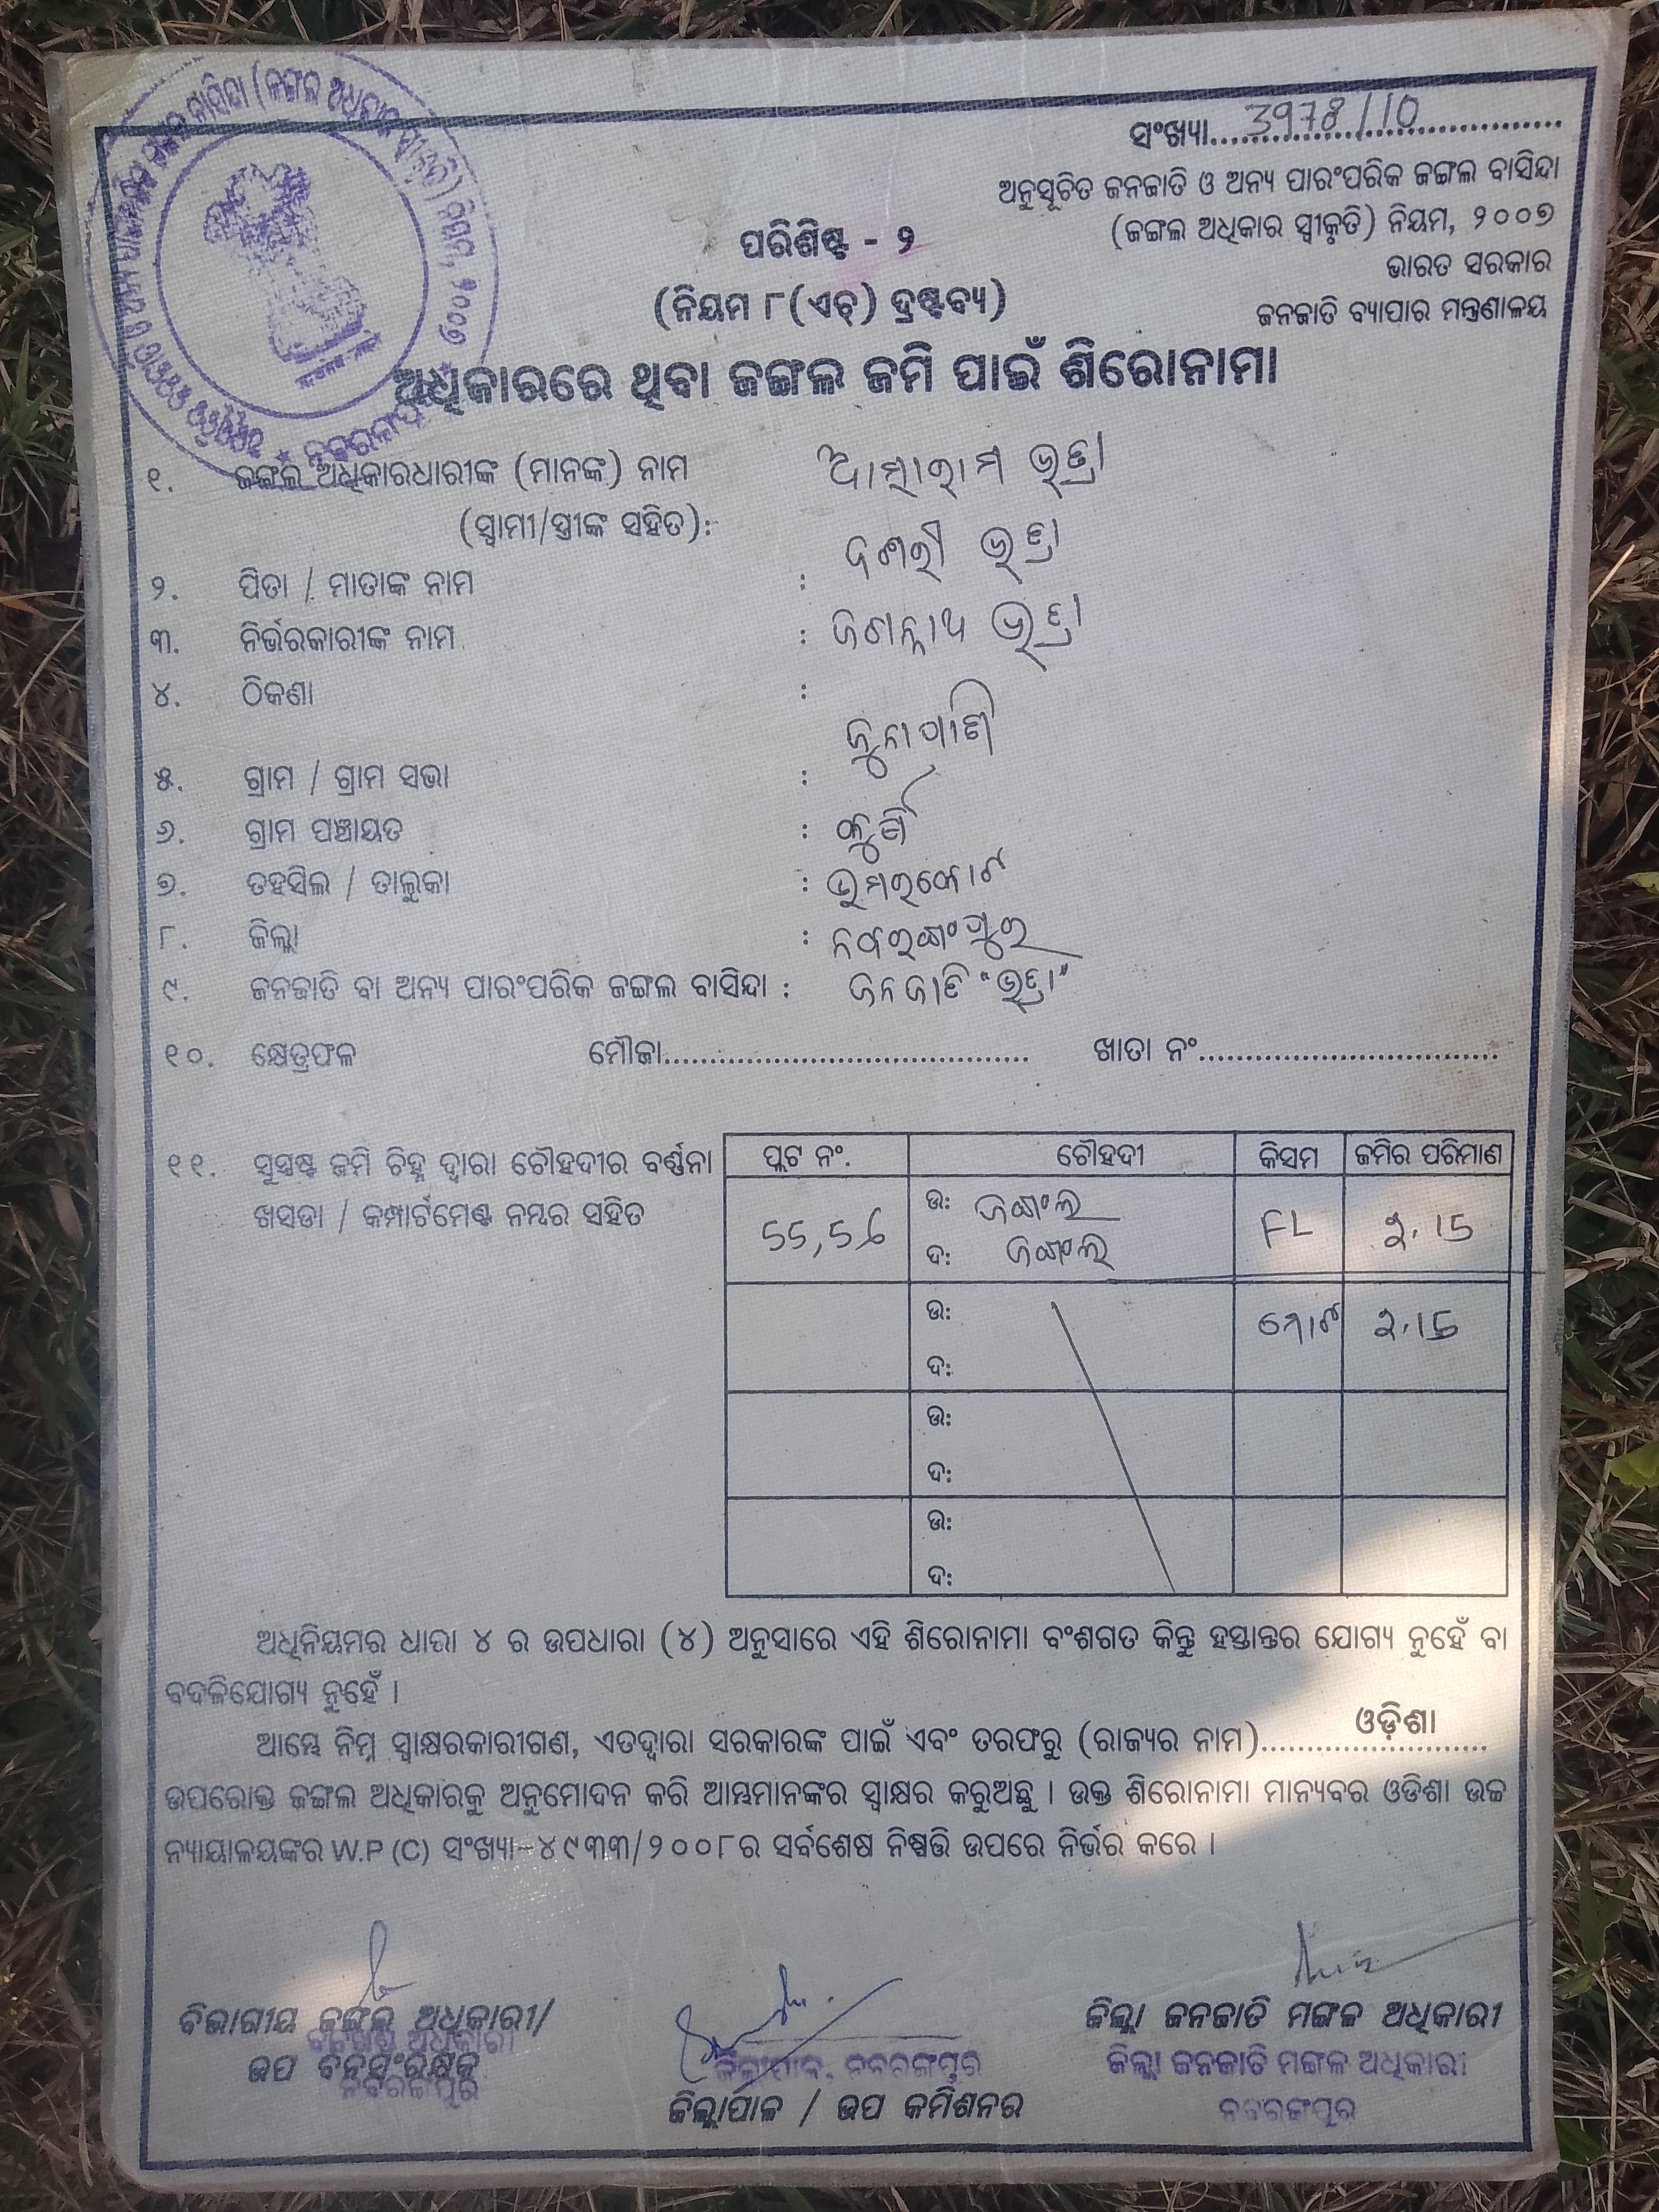 ସଂଖ୍ୟା 3978/10
ଅନୁସୂଚିତ ଜନଜାତି ଓ ଅନ୍ୟ ପାରଂପରିକ ଜଙ୍ଗଲ ବାସିନ୍ଦା
(ଜଙ୍ଗଲ ଅଧିକାର ସ୍ୱୀକୃତି) ନିୟମ, ୨୦୦୭
ଭାରତ ସରକାର
ଜନଜାତି ବ୍ୟାପାର ମନ୍ତ୍ରଣାଳୟ
ପରିଶିଷ୍ଟ - ୨
(ନିୟମ ୮(ଏଚ୍) ଦ୍ରଷ୍ଟବ୍ୟ)
ଅଧିକାରରେ ଥିବା ଜଙ୍ଗଲ ଜମି ପାଇଁ ଶିରୋନାମା
୧. ଜଙ୍ଗଲ ଅଧିକାରଧାରୀଙ୍କ (ମାନଙ୍କ) ନାମ ଆତ୍ମାରାମ ଭତ୍ରା
(ସ୍ୱାମୀ/ସ୍ତ୍ରୀଙ୍କ ସହିତ): ଭତ୍ରା
୨. ପିତା / ମାତାଙ୍କ ନାମ :
୩. ନିର୍ଭରକାରୀଙ୍କ ନାମ : ଜଗନ୍ନାଥ ଭତ୍ରା
୪. ଠିକଣା :
୫. ଗ୍ରାମ / ଗ୍ରାମ ସଭା : ଜୁନାପାଣି
୬. ଗ୍ରାମ ପଞ୍ଚାୟତ :
୭. ତହସିଲ / ତାଲୁକା : ଉମରକୋଟ
୮. ଜିଲ୍ଲା : ନବରଙ୍ଗପୁର
୯. ଜନଜାତି ବା ଅନ୍ୟ ପାରଂପରିକ ଜଙ୍ଗଲ ବାସିନ୍ଦା : ଜନଜାତି "ଭତ୍ରା"
୧୦. କ୍ଷେତ୍ରଫଳ ମୌଜା ଖାତା ନଂ
୧୧. ସୁସ୍ପଷ୍ଟ ଜମି ଚିହ୍ନ ଦ୍ୱାରା ଚୌହଦୀର ବର୍ଣ୍ଣନା
ଖସଡା / କମ୍ପାର୍ଟମେଣ୍ଟ ନମ୍ବର ସହିତ
ପ୍ଲଟ ନଂ. ଚୌହଦୀ କିସମ ଜମିର ପରିମାଣ
55,56 ଉ: ଜଙ୍ଗଲ FL 2.15
ଦ: ଜଙ୍ଗଲ
ଉ: ମୋଟ 2.15
ଦ:
ଉ:
ଦ:
ଉ:
ଦ:
ଅଧିନିୟମର ଧାରା ୪ ର ଉପଧାରା (୪) ଅନୁସାରେ ଏହି ଶିରୋନାମା ବଂଶଗତ କିନ୍ତୁ ହସ୍ତାନ୍ତର ଯୋଗ୍ୟ ନୁହେଁ ବା
ବଦଳିଯୋଗ୍ୟ ନୁହେଁ ।
ଆମ୍ଭେ ନିମ୍ନ ସ୍ୱାକ୍ଷରକାରୀଗଣ, ଏତଦ୍ୱାରା ସରକାରଙ୍କ ପାଇଁ ଏବଂ ତରଫରୁ (ରାଜ୍ୟର ନାମ) ଓଡ଼ିଶା
ଉପରୋକ୍ତ ଜଙ୍ଗଲ ଅଧିକାରକୁ ଅନୁମୋଦନ କରି ଆମ୍ଭମାନଙ୍କର ସ୍ୱାକ୍ଷର କରୁଅଛୁ । ଉକ୍ତ ଶିରୋନାମା ମାନ୍ୟବର ଓଡିଶା ଉଚ୍ଚ
ନ୍ୟାୟାଳୟଙ୍କର W.P (C) ସଂଖ୍ୟା-୪୯୩୩/୨୦୦୮ର ସର୍ବଶେଷ ନିଷ୍ପତ୍ତି ଉପରେ ନିର୍ଭର କରେ ।
ବିଭାଗୀୟ ଜଙ୍ଗଲ ଅଧିକାରୀ/
ଉପ ବନସଂରକ୍ଷକ
ନବରଙ୍ଗପୁର
ଜିଲ୍ଲାପାଳ, ନବରଙ୍ଗପୁର
ଜିଲ୍ଲାପାଳ / ଉପ କମିଶନର
ଜିଲ୍ଲା ଜନଜାତି ମଙ୍ଗଳ ଅଧିକାରୀ
ଜିଲ୍ଲା ଜନଜାତି ମଙ୍ଗଳ ଅଧିକାରୀ
ନବରଙ୍ଗପୁର